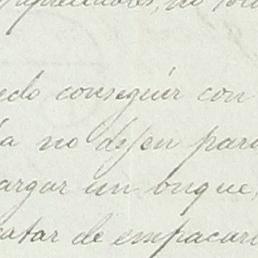 no
edo conseguir con
a no dejen para
argar un buque,
atar de empacar